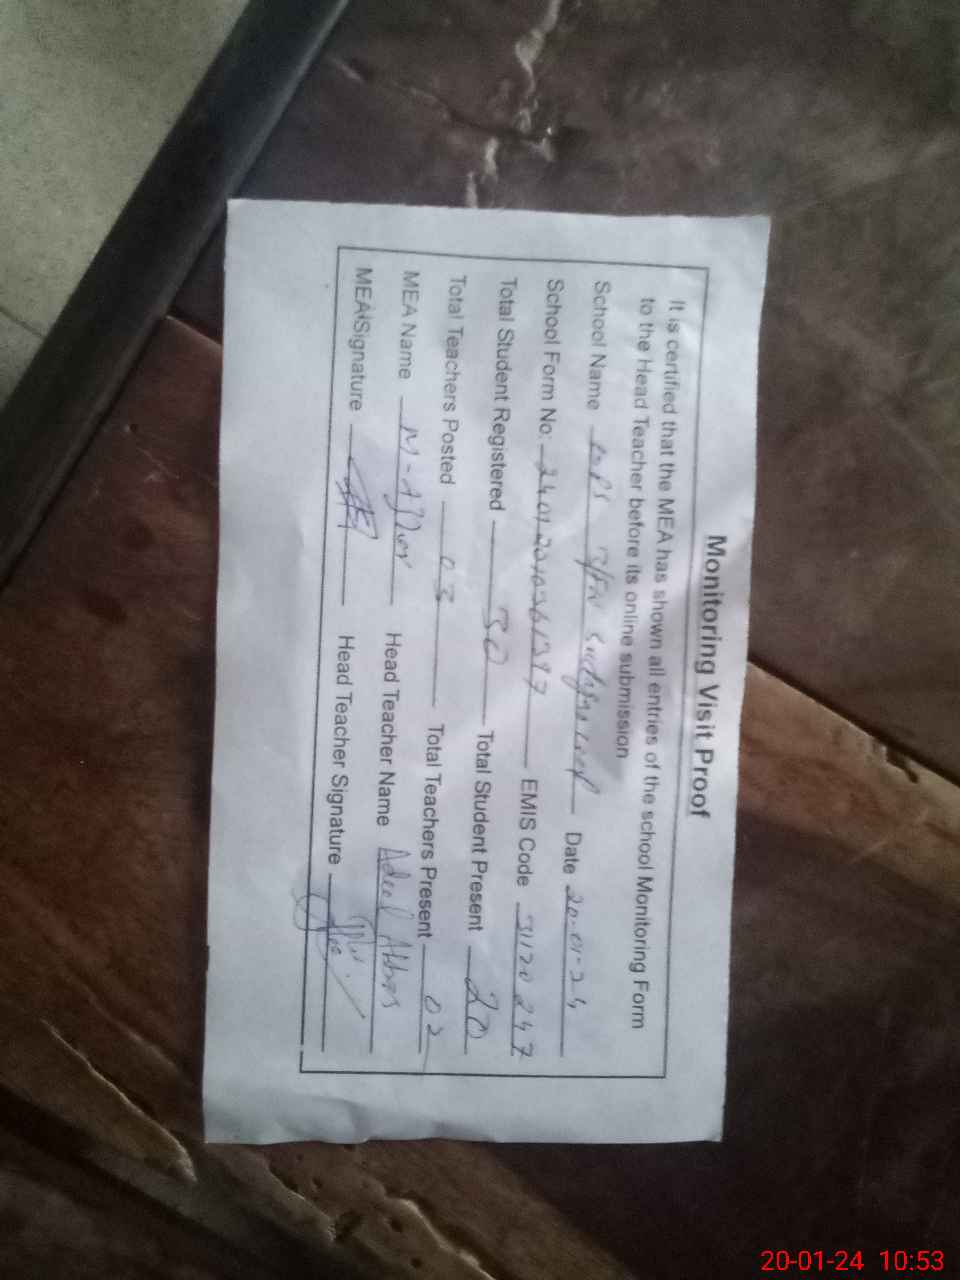 Monitoring Visit Proof
It is certified that the MEA has shown all entries of the school Monitoring Form
to the Head Teacher before its online submission
School Name Date 20-01-24
School Form No: EMIS Code 31120247
Total Student Registered 30 Total Student Present 20
Total Teachers Posted 03 Total Teachers Present 02
MEA Name Head Teacher Name Adeel Abbas
MEA Signature Head Teacher Signature
20-01-24 10:53